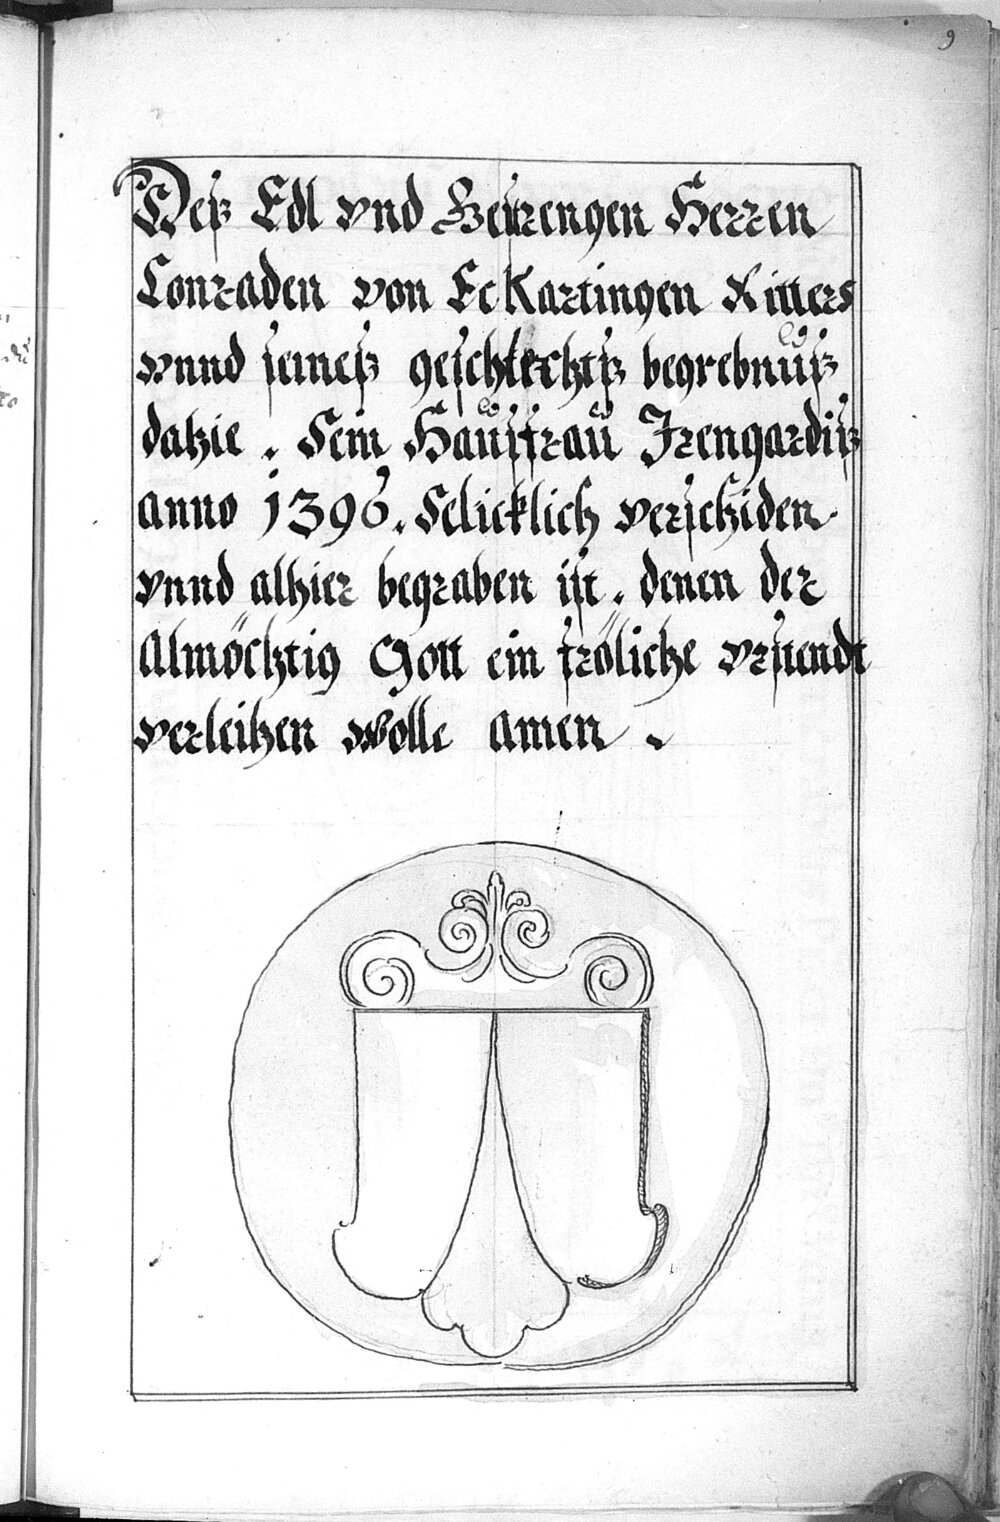 9
Deß Edl vnd Gestrengen Herren
Conraden von Eckartingen Ritters
vnnd seineß geschlechtß begrebnuß
dahie. Sein Haußfrau Irengardiß
anno 1396. Selicklich verschiden
vnnd alhier begraben ist. denen der
Almöchtig Gott ein fröliche vrstendt
verleihen wolle amen.